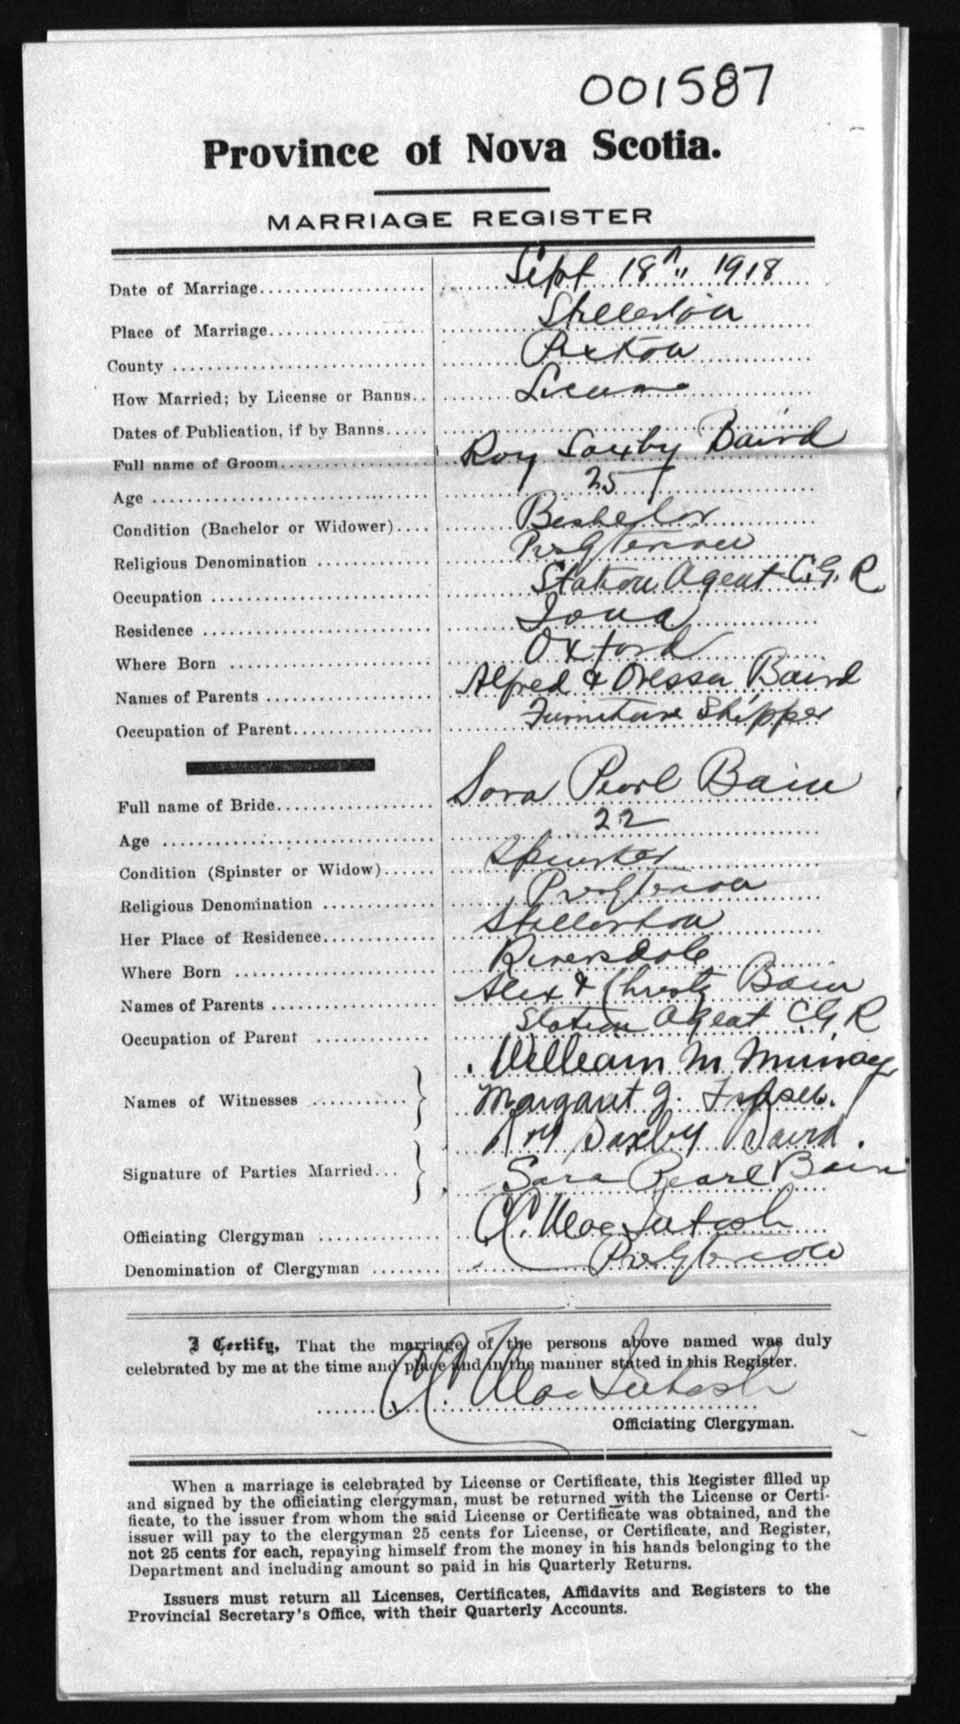 001587
Province of Nova Scotia.
MARRIAGE REGISTER
Date of Marriage Sept 18th 1918
Place of Marriage Stellerton
County Pictou
How Married; by License or Banns License
Dates of Publication, if by Banns
Full name of Groom Roy Saxby Baird
Age 25
Condition (Bachelor or Widower) Bachelor
Religious Denomination Presbyterian
Occupation Station Agent C.G.R
Residence Iona
Where Born Oxford
Names of Parents Alfred & Oressa Baird
Occupation of Parent Furniture Shipper
Full name of Bride Sara Pearl Bain
Age 22
Condition (Spinster or Widow) Spinster
Religious Denomination Presbyterian
Her Place of Residence Stellerton
Where Born Riversdale
Names of Parents Alex & Christy Bain
Occupation of Parent Station Agent C.G.R
Names of Witnesses William M Murray
Margaret J. Fraser.
Signature of Parties Married Roy Saxby Baird.
Sara Pearl Bain
Officiating Clergyman C.C. MacIntosh
Denomination of Clergyman Presbyterian
I Certify, That the marriage of the persons above named was duly
celebrated by me at the time and place and in the manner stated in this Register.
C.C. MacIntosh
Officiating Clergyman.
When a marriage is celebrated by License or Certificate, this Register filled up
and signed by the officiating clergyman, must be returned with the License or Certi-
ficate, to the issuer from whom the said License or Certificate was obtained, and the
issuer will pay to the clergyman 25 cents for License, or Certificate, and Register,
not 25 cents for each, repaying himself from the money in his hands belonging to the
Department and including amount so paid in his Quarterly Returns.
Issuers must return all Licenses, Certificates, Affidavits and Registers to the
Provincial Secretary's Office, with their Quarterly Accounts.